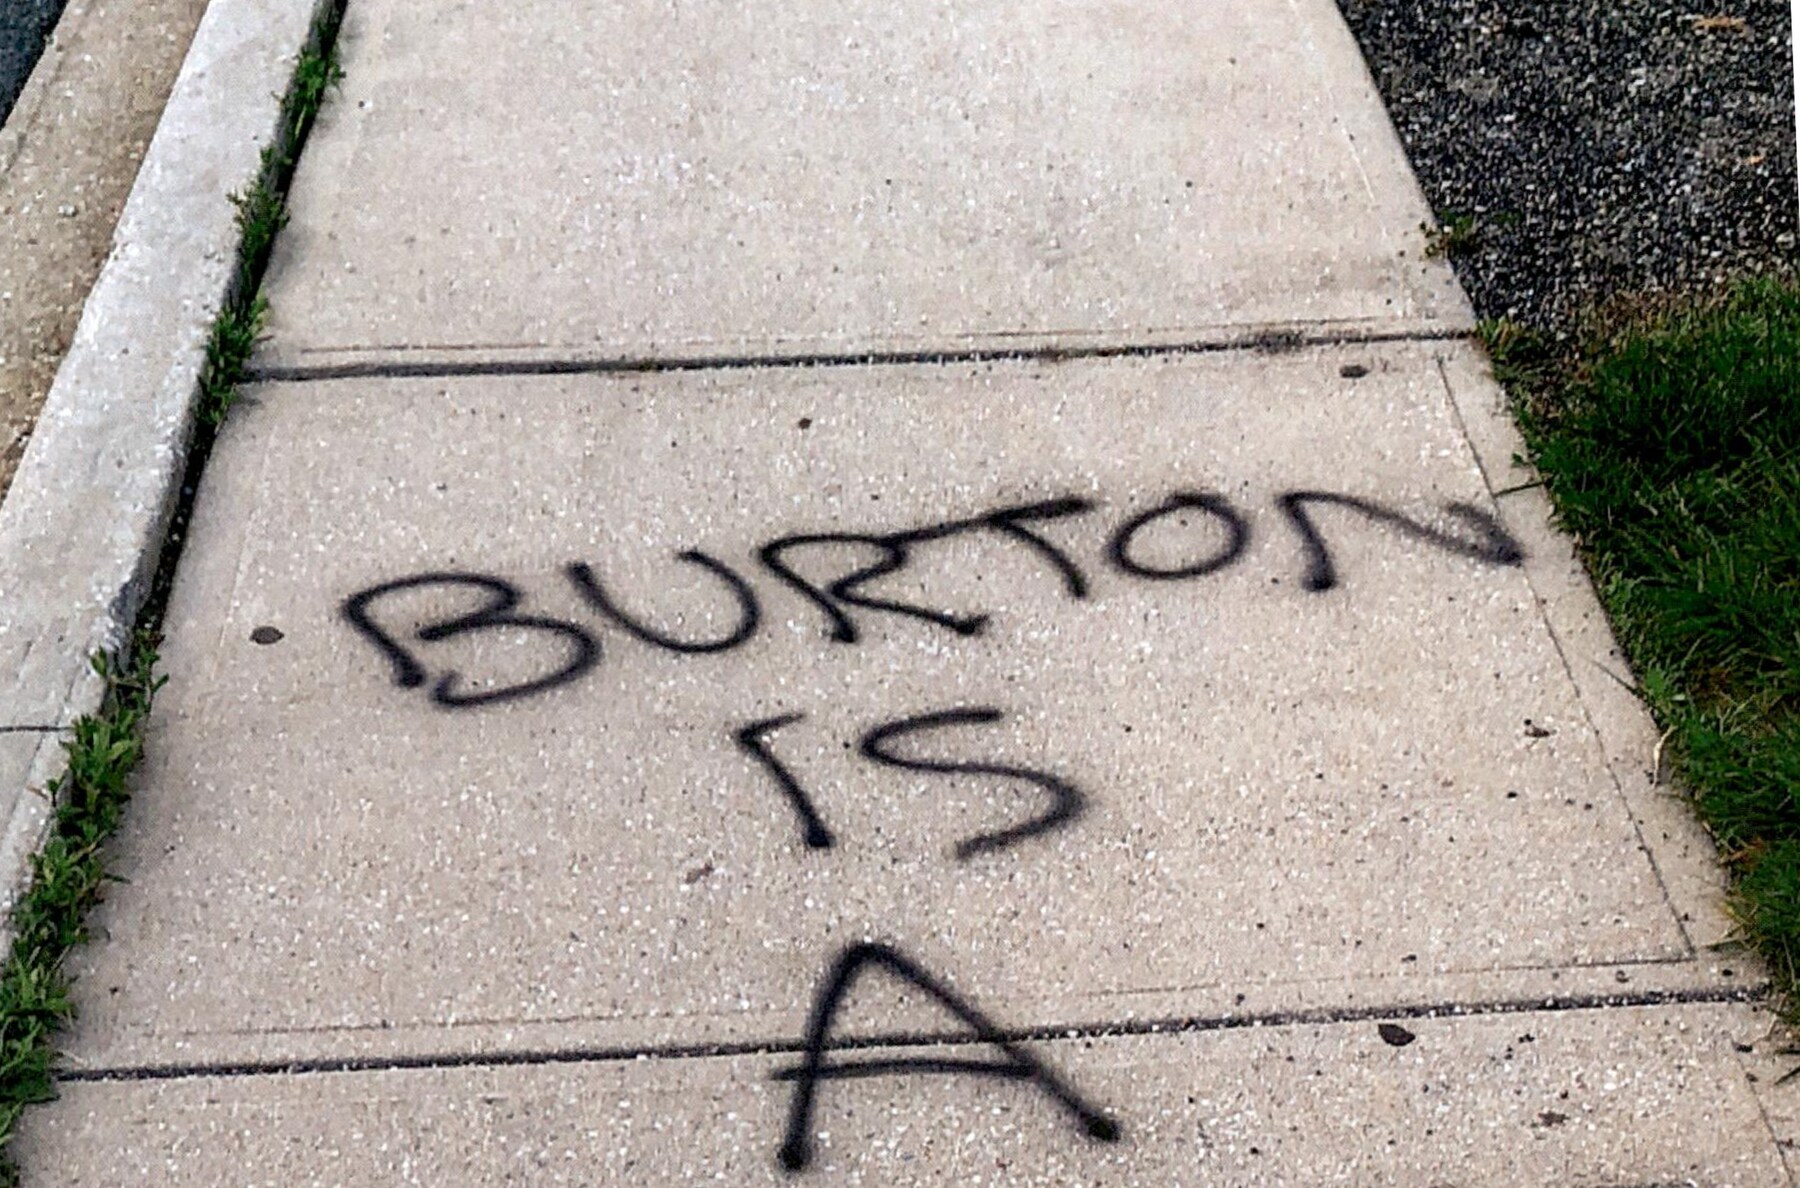 BURTON
IS
A